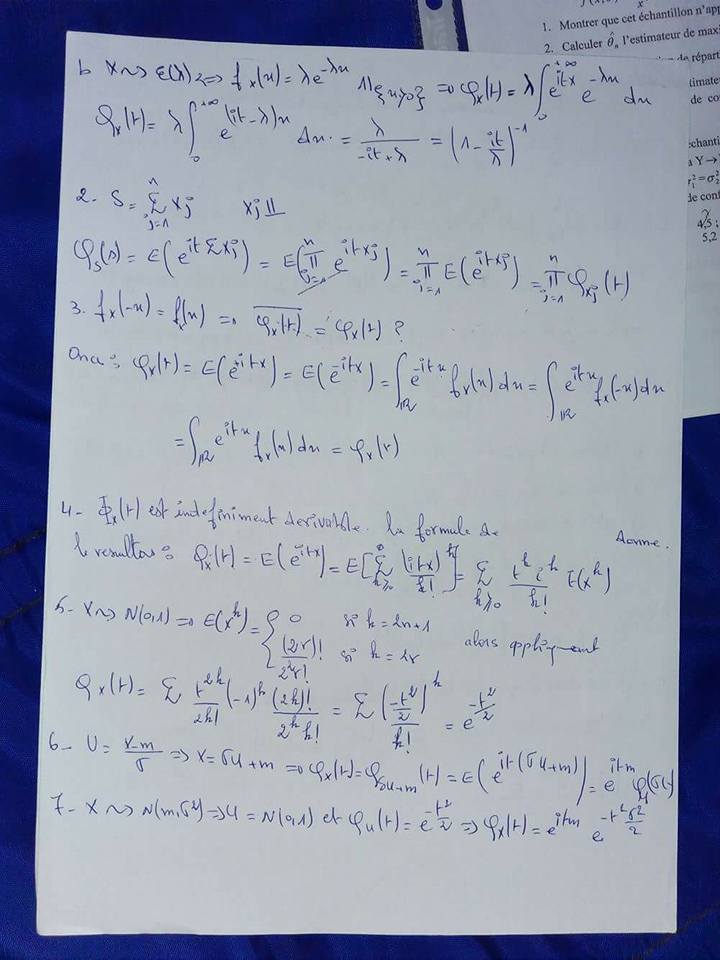 1. Montrer que cet échantillon n'app
2. Calculer θ̂ₙ l'estimateur de max
de répart
timate
de co
échanti
a Y →
de conf
4,5 ;
5,2
1. X ~> E(λ) <=> f_X(x) = λe^{-λx} 1l{x>0} => φ_X(t) = λ∫_0^{+∞} e^{itx} e^{-λx} dx
φ_X(t) = λ∫_0^{+∞} e^{(it-λ)x} dx. = λ/(-it+λ) = (1 - it/λ)^{-1}
2- S = Σ_{j=1}^n Xj Xj ⊥⊥
φ_S(s) = E(e^{itΣXj}) = E(Π_{j=1}^n e^{itXj}) = Π_{j=1}^n E(e^{itXj}) = Π_{j=1}^n φ_{Xj}(t)
3. f_X(-x) = f(x) => \overline{φ_X(t)} = φ_X(t) ?
On a : φ_X(t) = E(e^{itX}) = E(e^{-itX}) = ∫_{IR} e^{-itx} f_X(x) dx = ∫_{IR} e^{itx} f_X(-x) dx
= ∫_{IR} e^{itx} f_X(x) dx = φ_X(t)
4- Φ_X(t) est indefiniment derivable. la formule de donne
le resultas : φ_X(t) = E(e^{itX}) = E[Σ_{k≥0} (itX)^k/k!] = Σ_{k≥0} t^k i^k/k! E(X^k)
5- X ~> N(0,1) => E(X^k) = { 0 si k = 2r+1
(2r)!/2^r r! si k = 2r alors appliquent
φ_X(t) = Σ t^{2k}/2k! (-1)^k (2k)!/2^k k! = Σ (-t²/2)^k/k! = e^{-t²/2}
6- U = (X-m)/σ => X = σU+m => φ_X(t) = φ_{σU+m}(t) = E(e^{it(σU+m)}) = e^{itm} φ_U(σt)
7- X ~> N(m,σ²) => U = N(0,1) et φ_U(t) = e^{-t²/2} => φ_X(t) = e^{itm} e^{-t²σ²/2}